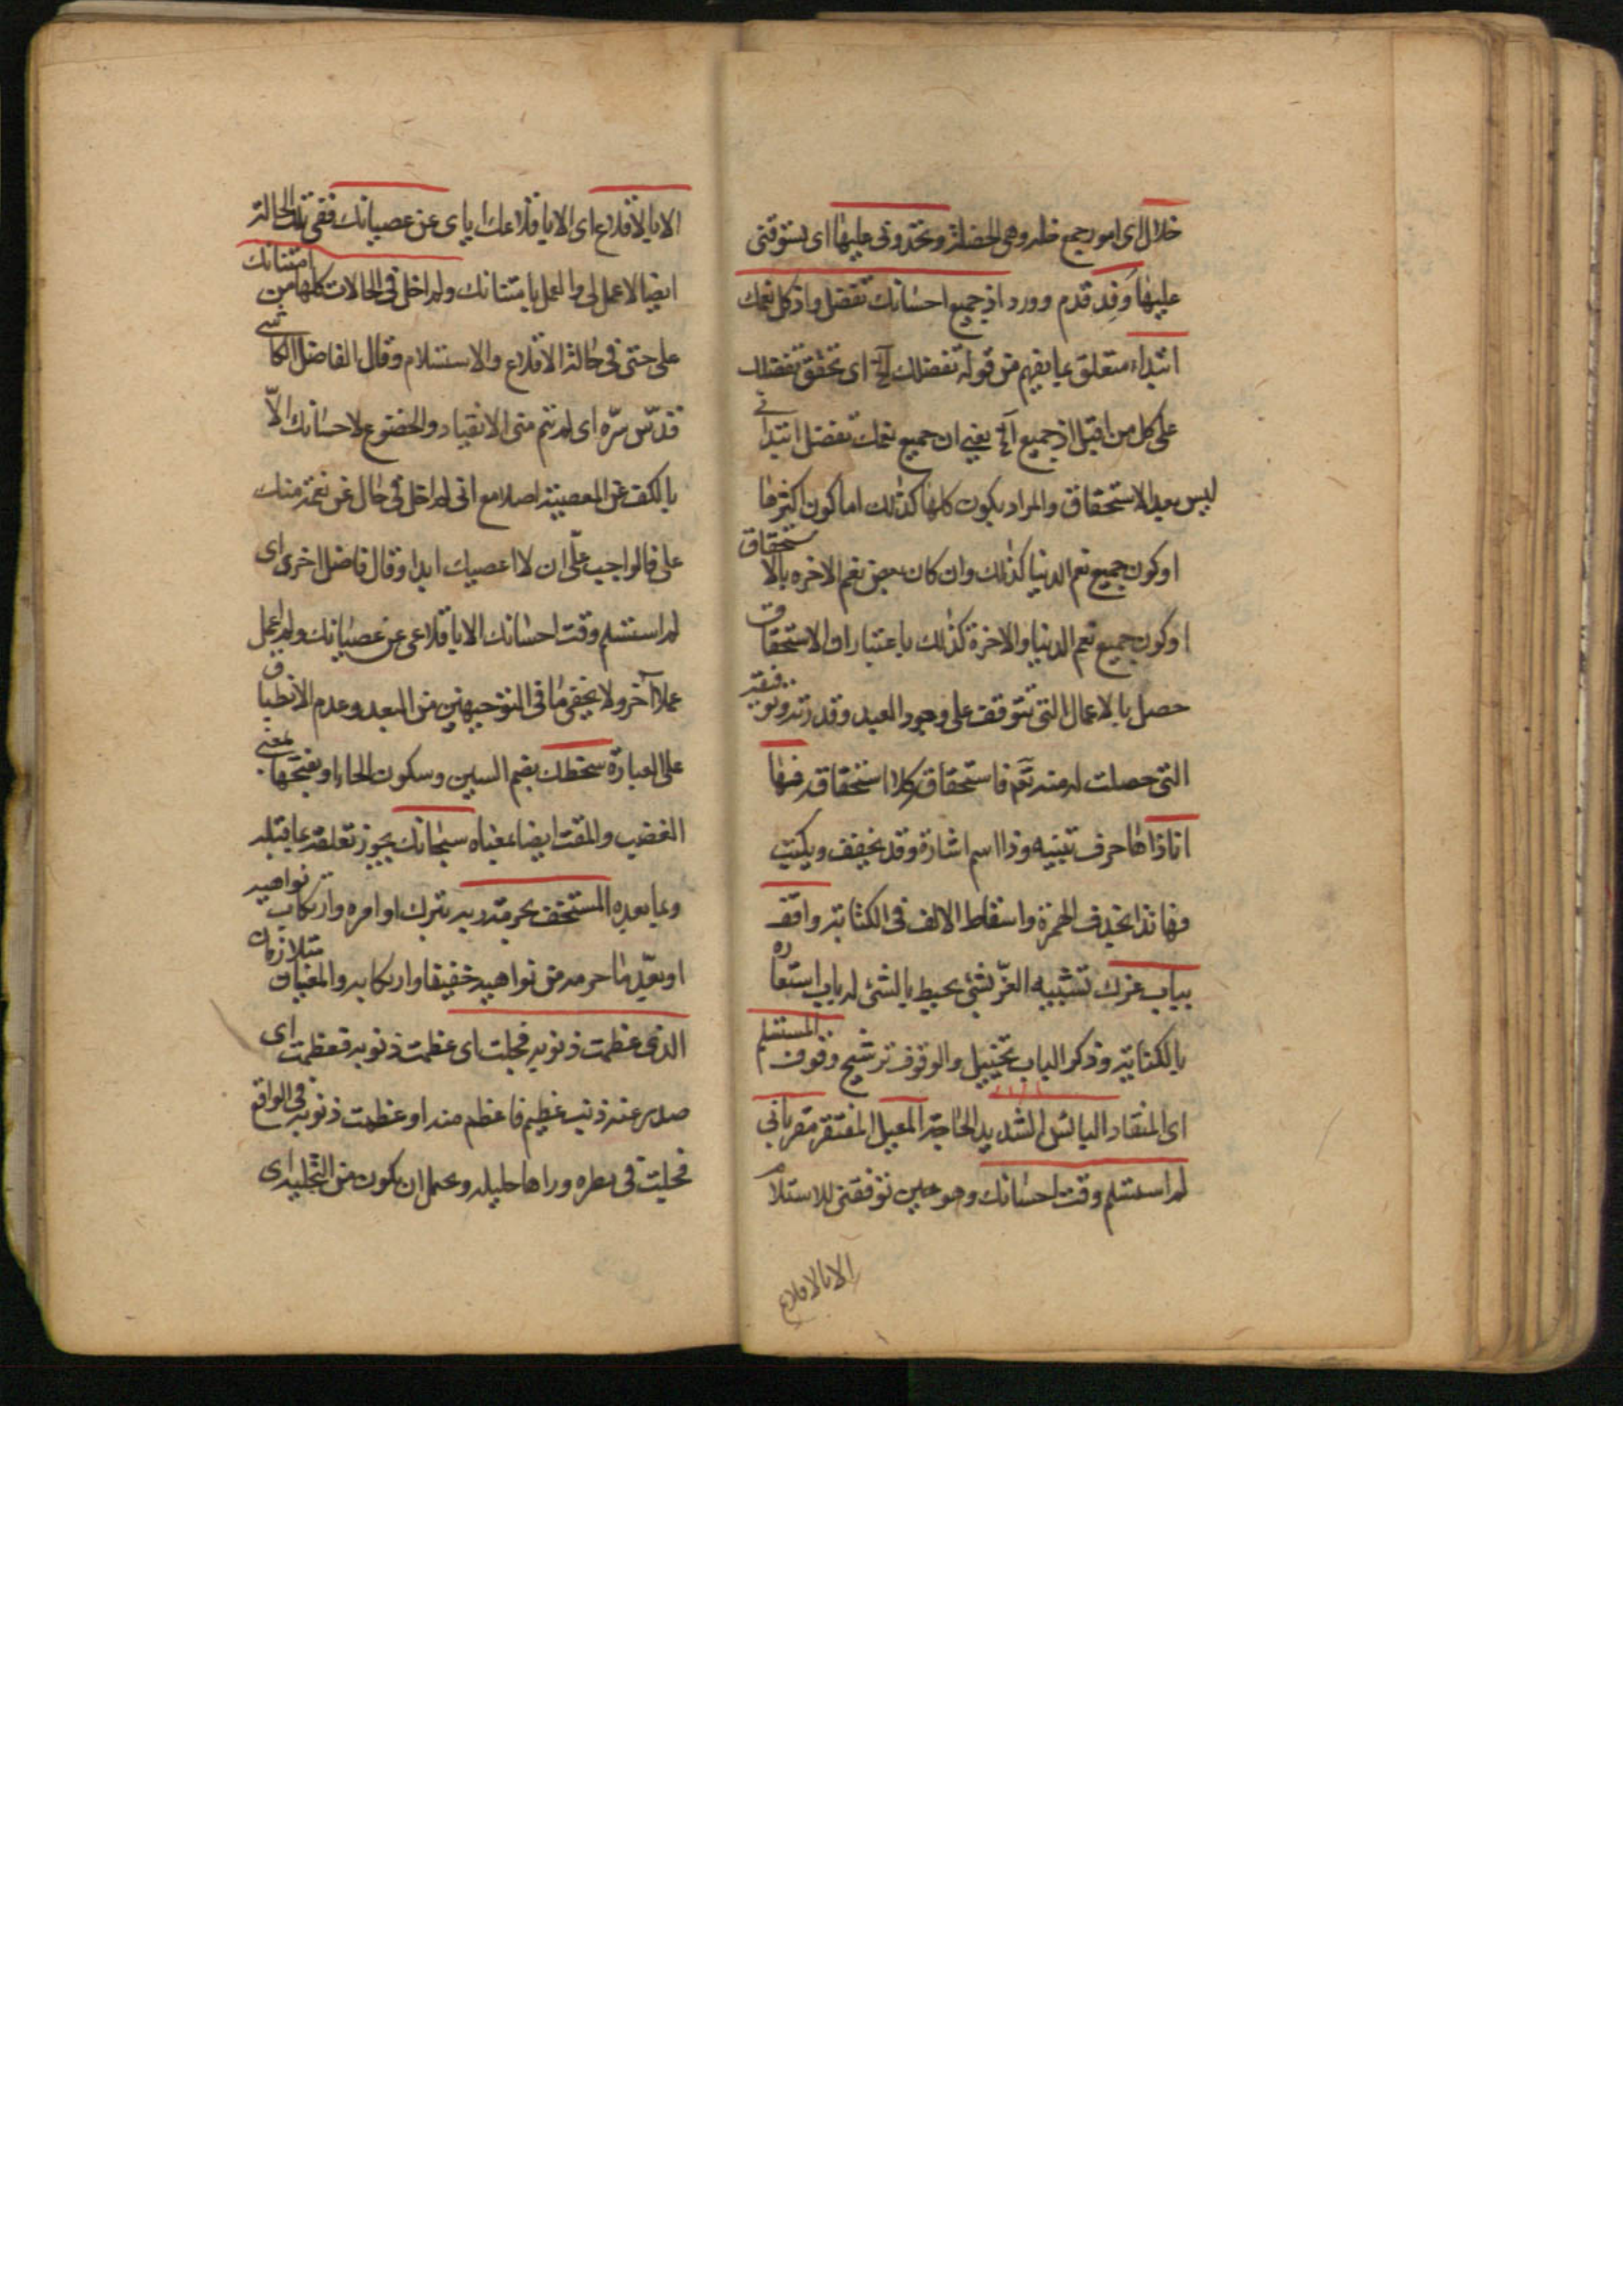 خلال اى امور جمع خله وهى الخصلة وتحدونى عليها اى تسوقنى
عليها وفد قدم وورد اذ جميع احسانك تفضل واذ كل نعمك
ابتداء متعلق بما يفهم من قوله تفضلك آلخ اى تحقق تفضلك
على كل من اقبل اذ جميع آلخ يعنى ان جميع نعمك تفضل ابتدائى
ليس بعد الاستحقاق والمراد بكون كلها كذلك اما كون اكثرها
او كون جميع نعم الدنيا كذلك وان كان بعض نعم الاخره بالاستحقاق
او كون جميع نعم الدنيا والاخرة كذلك باعتبار ان الاستحقاق
حصل بالاعمال التى تتوقف على وجود العبد وقدرته وتوفيقه
التى حصلت له منه تعم فاستحقاق كلا استحقاق فها
اناذا ها حرف تنبيه وذا اسم اشارة وقد يخفف ويكتب
فهانذا بحذف الهمزة واسقاط الالف فى الكتابة واقف
بباب عزك تشبيه العز بشئ يحيط بالشئ له باب استعاره
بالكناية وذكر الباب تخييل والوقوف ترشيح وقوف المستسلم
اى المنقاد البائس الشديد الحاجة المعيل المفتقر مقر بانى
لم استسلم وقت احسانك وهو حين توفقنى للاستلام
الا بالاقلاع
الا بالاقلاع اى الا باقلاعك اياى عن عصيانك ففى تلك الحالة
ايضا لا عمل لى والعمل بامتنانك ولم اخل فى الحالات كلها من امتنانك
على حتى فى حالة الاقلاع والاستسلام وقال الفاضل الكاشى
قدّس سرّه اى لم يتم منى الانقياد والخضوع لاحسانك الاّ
بالكف عن المعصية اصلا مع انى لم اخل فى حال عن نعمة منك
على فالواجب علّى ان لا اعصيك ابدا وقال فاضل اخرى اى
لم استسلم وقت احسانك الا باقلاعى عن عصيانك ولم اعمل
عملا آخر ولا يخفى ما فى التوجيهين من البعد وعدم الانطباق
على العبارة سخطك بضم السين وسكون الخاء او بفتحها بمعنى
الغضب والمقت ايضا بمعناه سبحانك يجوز تعلقه بما قبله
وبما بعده المستخف بحرمة ربه بترك اوامره وارتكاب نواهيه
او بعدّ ما حرمه من نواهيه خفيفا وارتكابه والمعنيان متلازمان
الذى عظمت ذنوبه فجلت اى عظمت ذنوبه فعظمت اى
صدر عنه ذنب عظيم فاعظم منه او عظمت ذنوبه فى الواقع
فجلت فى نظره وراها جليله ويحتمل ان يكون من التجليل اى